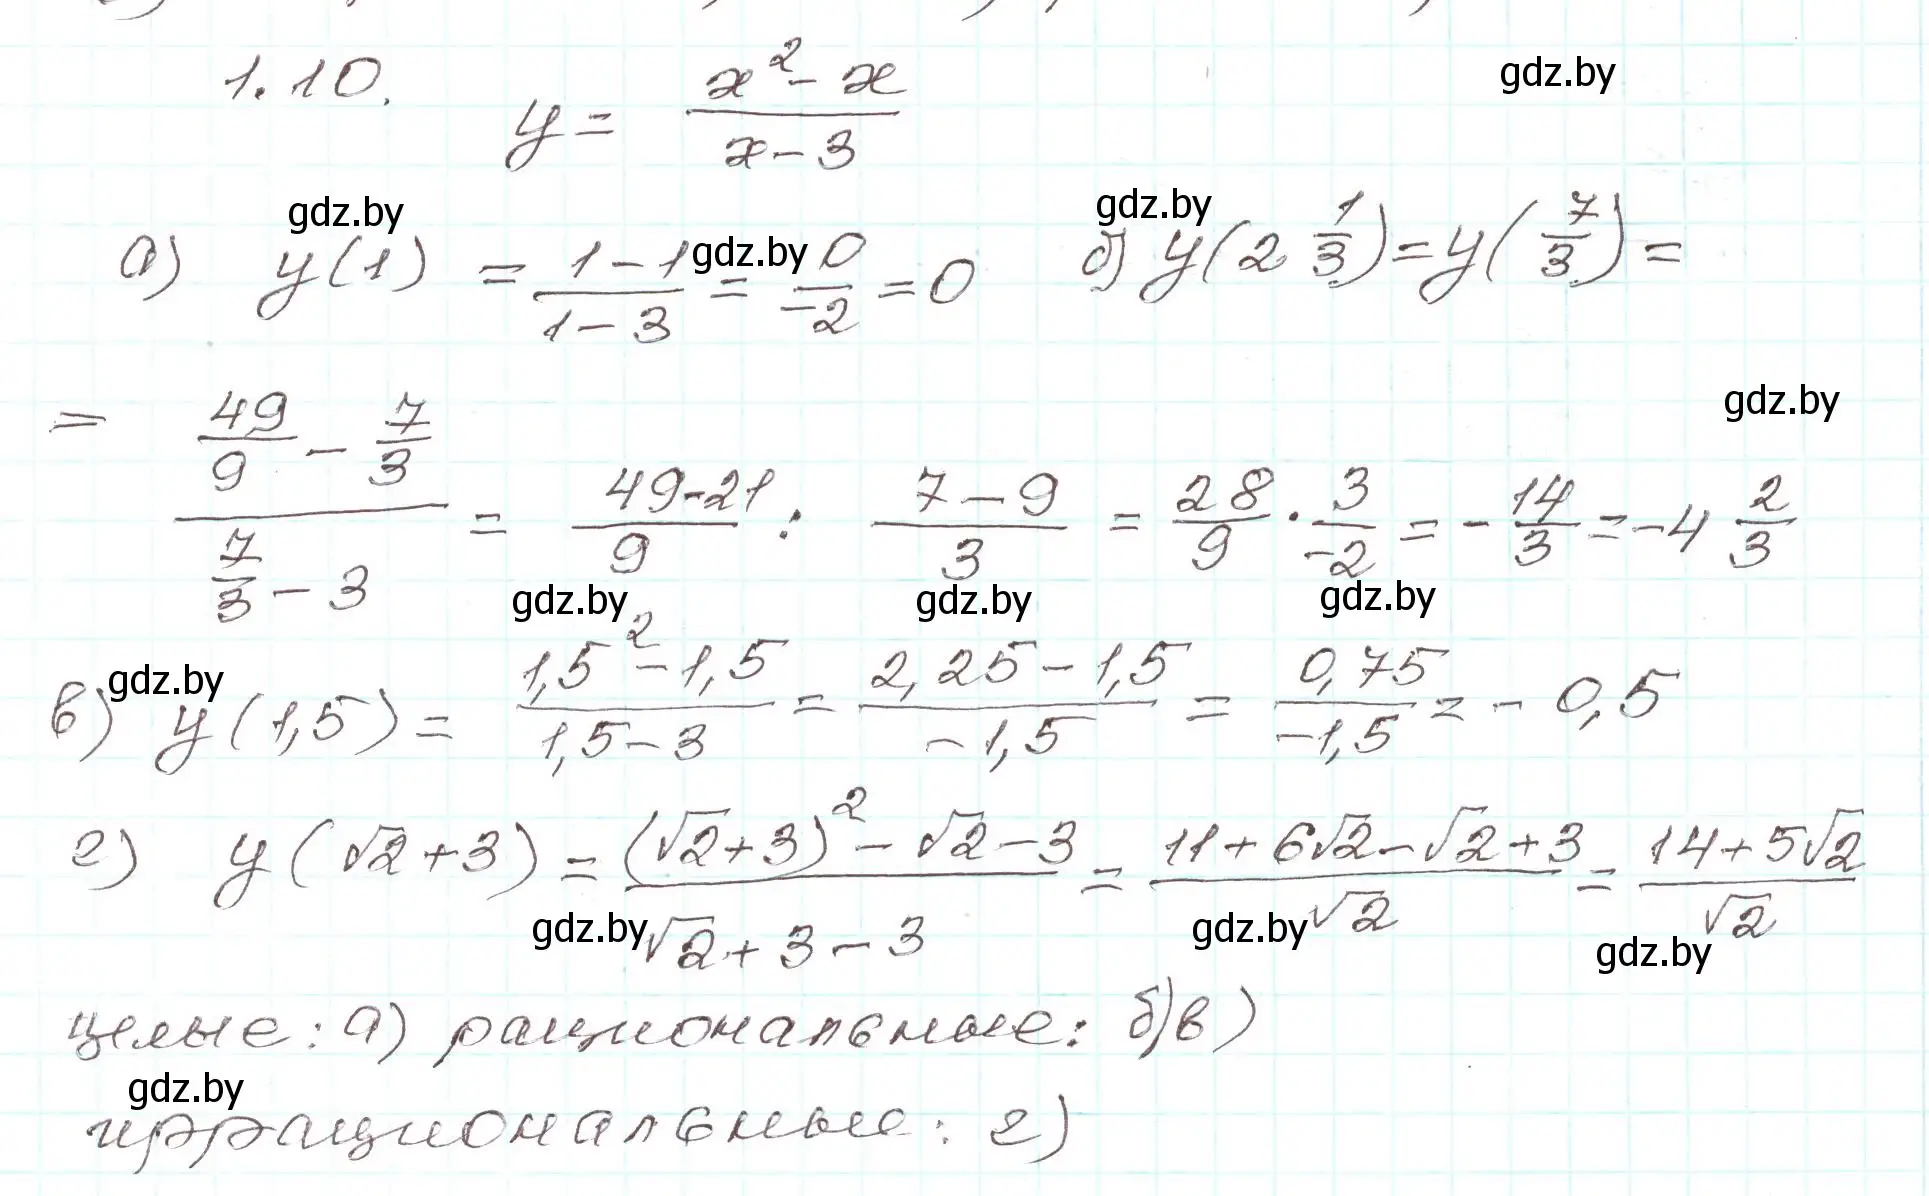 1.10. y = (x² - x)/(x - 3) gdz.by
gdz.by gdz.by
а) y(1) = (1 - 1)/(1 - 3) gdz.by = 0/(-2) = 0 б) y(2 1/3) = y(7/3) =
= (49/9 - 7/3)/(7/3 - 3) = (49-21)/9 : (7 - 9)/3 = 28/9 · 3/(-2) = - 14/3 = -4 2/3 gdz.by
gdz.by gdz.by gdz.by
в) gdz.by y(1,5) = (1,5² - 1,5)/(1,5 - 3) = (2,25 - 1,5)/(-1,5) = 0,75/(-1,5) = - 0,5
г) y(√2+3) = ((√2+3)² - √2 - 3)/(√2 + 3 - 3) = (11 + 6√2 - √2 + 3)/√2 = (14 + 5√2)/√2
gdz.by gdz.by gdz.by
целые: а) рациональные: б)в)
gdz.by
иррациональные: г)